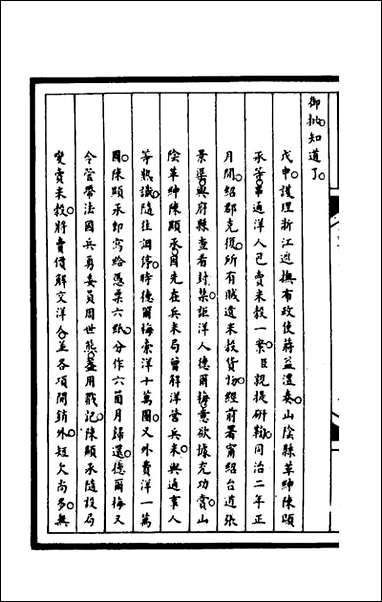 御批知道了。
戊申護理浙江巡撫布政使蔣益澧奏山陰縣革紳陳顯
承等串通洋人已賣米穀一案。臣親提研鞫。同治二年正
月間。紹郡克復。所有賊遺米穀貨物。經前署甯紹台道張
景渠。與府縣查看封禁。詎洋人德爾梅。意欲據充功賞。山
陰革紳陳顯承。自先在兵米局。曾解洋營兵米。與通事人
等熟識。隨往調停。時德爾梅索洋十萬圓。又外費洋一萬
圓。陳顯承即寫給憑票六紙。分作六箇月歸還。德爾梅又
令管帶法國兵勇委員周世熊。蓋用戳記。陳顯承隨設局
變賣米穀。將賣價解交洋人。並各項開銷外。短欠尚多。無